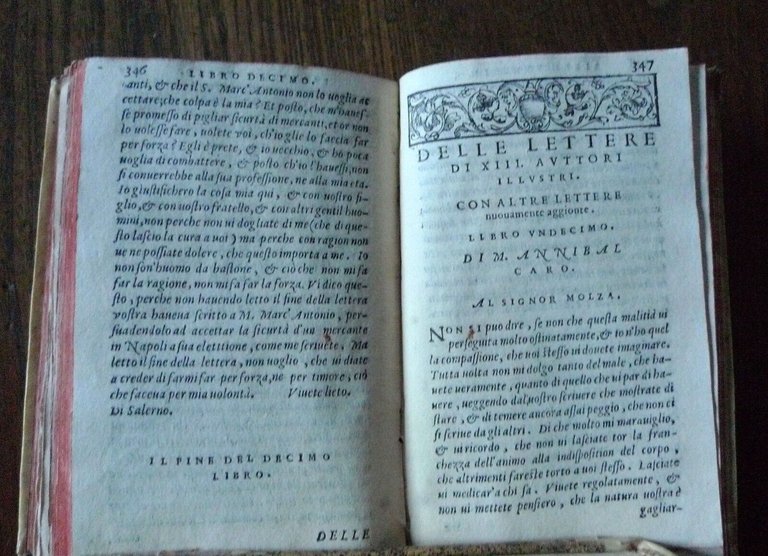 346
LIBRO DECIMO.
anti, & che il S. Marc' Antonio non lo uoglia ac
cettare; che colpa è la mia? Et posto, che m'hauess
se promesso di pigliar sicurtà di mercanti, et or non
lo uolesse fare, uolete voi, ch'io glie lo faccia far
per forza? Egli è prete, & io uecchio, & ho poca
uoglia di combattere, & posto ch'io l'hauessi, non
si conuerrebbe alla sua professione, ne alla mia età.
Io giustificherò la cosa mia quì, & con uostro fi-
glio, & con uostro fratello, & con altri gentil huo-
mini, non perche non ui dogliate di me (che di que-
sto lascio la cura a uoi) ma perche con ragion non
ue ne possiate dolere, che questo importa a me. Io
non son' huomo da bastone, & ciò che non mi fa
far la ragione, non mi fa far la forza. Vi dico que-
sto, perche non hauendo letto il fine della lettera
vostra haueua scritto a M. Marc' Antonio, per-
suadendolo ad accettar la sicurtà d'un mercante
in Napoli a sua elettione, come me scriuete. Ma
letto il fine della lettera, non uoglio, che ui diate
a creder di farmi far per forza, ne per timore, ciò
che faceua per mia uolontà. Viuete lieto.
Di Salerno.
IL FINE DEL DECIMO
LIBRO.
DELLE
347
DELLE LETTERE
DI XIII. AVTTORI
ILLVSTRI.
CON ALTRE LETTERE
nuouamente aggionte.
LIBRO VNDECIMO.
DI M. ANNIBAL
CARO.
AL SIGNOR MOLZA.
NON si può dire, se non che questa malitia ui
perseguita molto ostinatamente, & io n'ho quel
la compassione, che uoi stesso ui douete imaginare.
Tutta uolta non mi dolgo tanto del male, che ha-
uete ueramente, quanto di quello che ui par di ha-
uere, ueggendo dal uostro scriuere che mostrate di
stare, & di temere ancora assai peggio, che non ci
si scriue da gli altri. Di che molto mi marauiglio,
& ui ricordo, che non ui lasciate tor la fran-
chezza dell'animo alla indispositíon del corpo,
che altrimenti fareste torto a uoi stesso. Lasciate
ui medicar' a chi sa. Viuete regolatamente, &
non ui mettete pensiero, che la natura uostra è
gagliar-